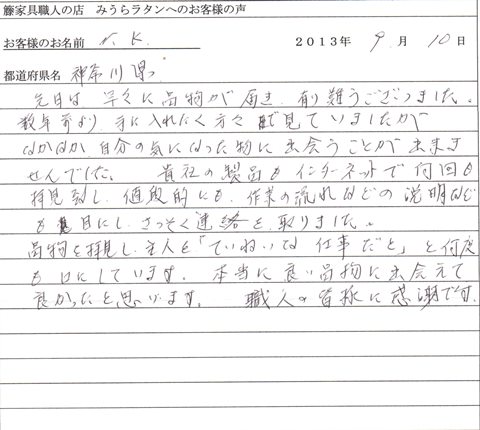 籐家具職人の店 みうらラタンへのお客様の声
お客様のお名前 Y.K 2013年 9月 10日
都道府県名 神奈川県
先日は 早々に品物が届き、有り難うございました。
数年前より 手に入れたく方々 見ていましたが
なかなか自分の気に入った物に出会うことが出来ま
せんでした。 貴社の製品も インターネットで何回も
拝見致し、値段的にも、作業の流れなどの説明なども
も 目にし、さっそく連絡を取りました。
品物を拝見し、主人も「ていねいな仕事だと」と何度
も口にしています。本当に良い品物に出会えて
良かったと思います。 職人の皆様に感謝です